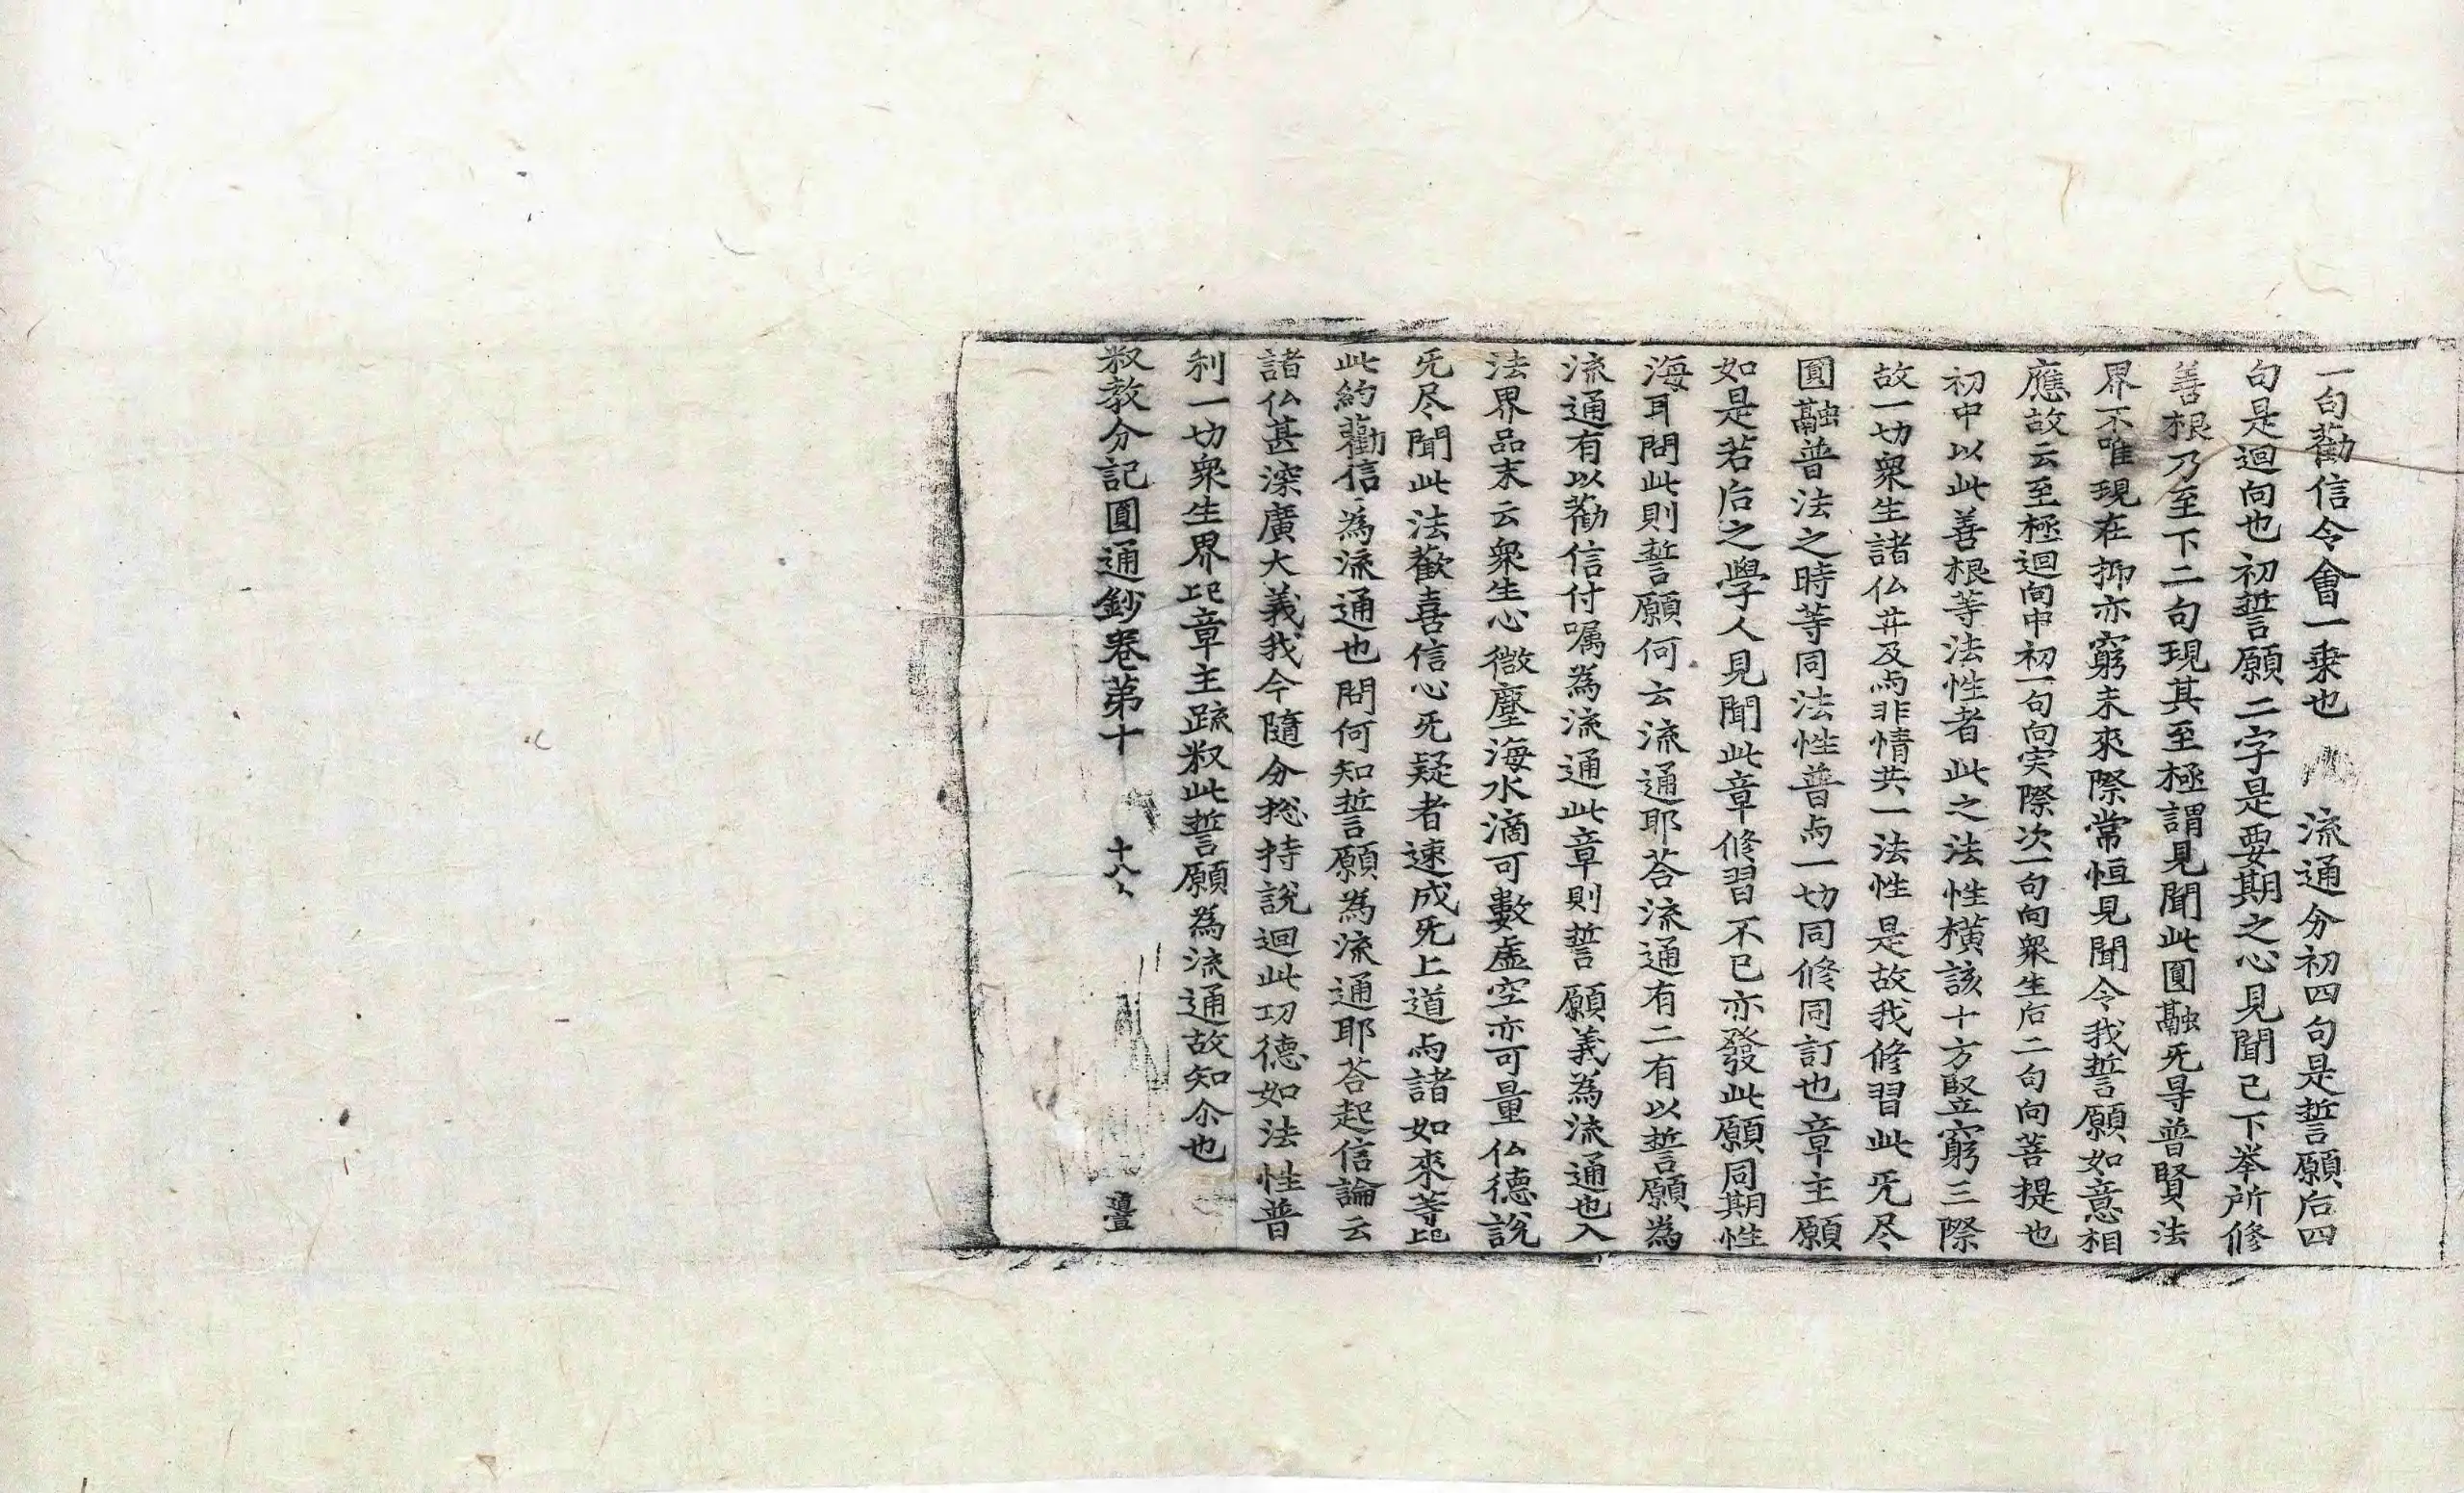 一句勸信令會一乗也　流通分初四句是誓願后四
句是迴向也初誓願二字是要期之心見聞已下举所修
善根乃至下二句現其至極謂見聞此圓融旡㝵普賢法
界不唯現在抑亦窮未來際常恒見聞令我誓願如意相
應故云至極迴向中初一句向实際次一句向衆生后二句向菩提也
初中以此善根等法性者此之法性橫該十方竪窮三際
故一切衆生諸仏井及与非情共一法性是故我修習此旡尽
圓融普法之時等同法性普与一切同修同訂也章主願
如是若后之學人見聞此章修習不已亦發此願同期性
海耳問此則誓願何云流通耶荅流通有二有以誓願為
流通有以勸信付嘱為流通此章則誓願義為流通也入
法界品末云衆生心微塵海水滴可數虛空亦可量仏德說
旡尽聞此法歡喜信心旡疑者速成旡上道与諸如來等
此約勸信為流通也問何知誓願為流通耶荅起信論云
諸仏甚深廣大義我今隨分捴持說迴此功德如法性普
利一切衆生界章主䟽釈此誓願為流通故知尒也
釈教分記圓通鈔卷第十　十八